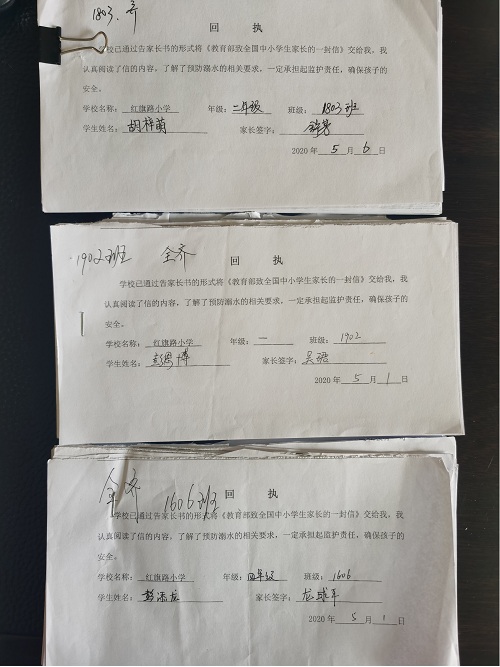 1803. 齐
回 执
学校已通过告家长书的形式将《教育部致全国中小学生家长的一封信》交给我，我
认真阅读了信的内容，了解了预防溺水的相关要求，一定承担起监护责任，确保孩子的
安全。
学校名称： 红旗路小学 年级：二年级 班级：1803班
学生姓名：胡梓萌 家长签字：
2020年 5 月 6 日
1902班 全齐
回 执
学校已通过告家长书的形式将《教育部致全国中小学生家长的一封信》交给我，我
认真阅读了信的内容，了解了预防溺水的相关要求，一定承担起监护责任，确保孩子的
安全。
学校名称： 红旗路小学 年级： 一 班级： 1902
学生姓名：彭思博 家长签字：吴珺
2020年 5 月 1 日
全齐 1606班
回 执
学校已通过告家长书的形式将《教育部致全国中小学生家长的一封信》交给我，我
认真阅读了信的内容，了解了预防溺水的相关要求，一定承担起监护责任，确保孩子的
安全。
学校名称： 红旗路小学 年级：四年级 班级： 1606
学生姓名：彭添龙 家长签字：龙球平
2020年 5 月 1 日